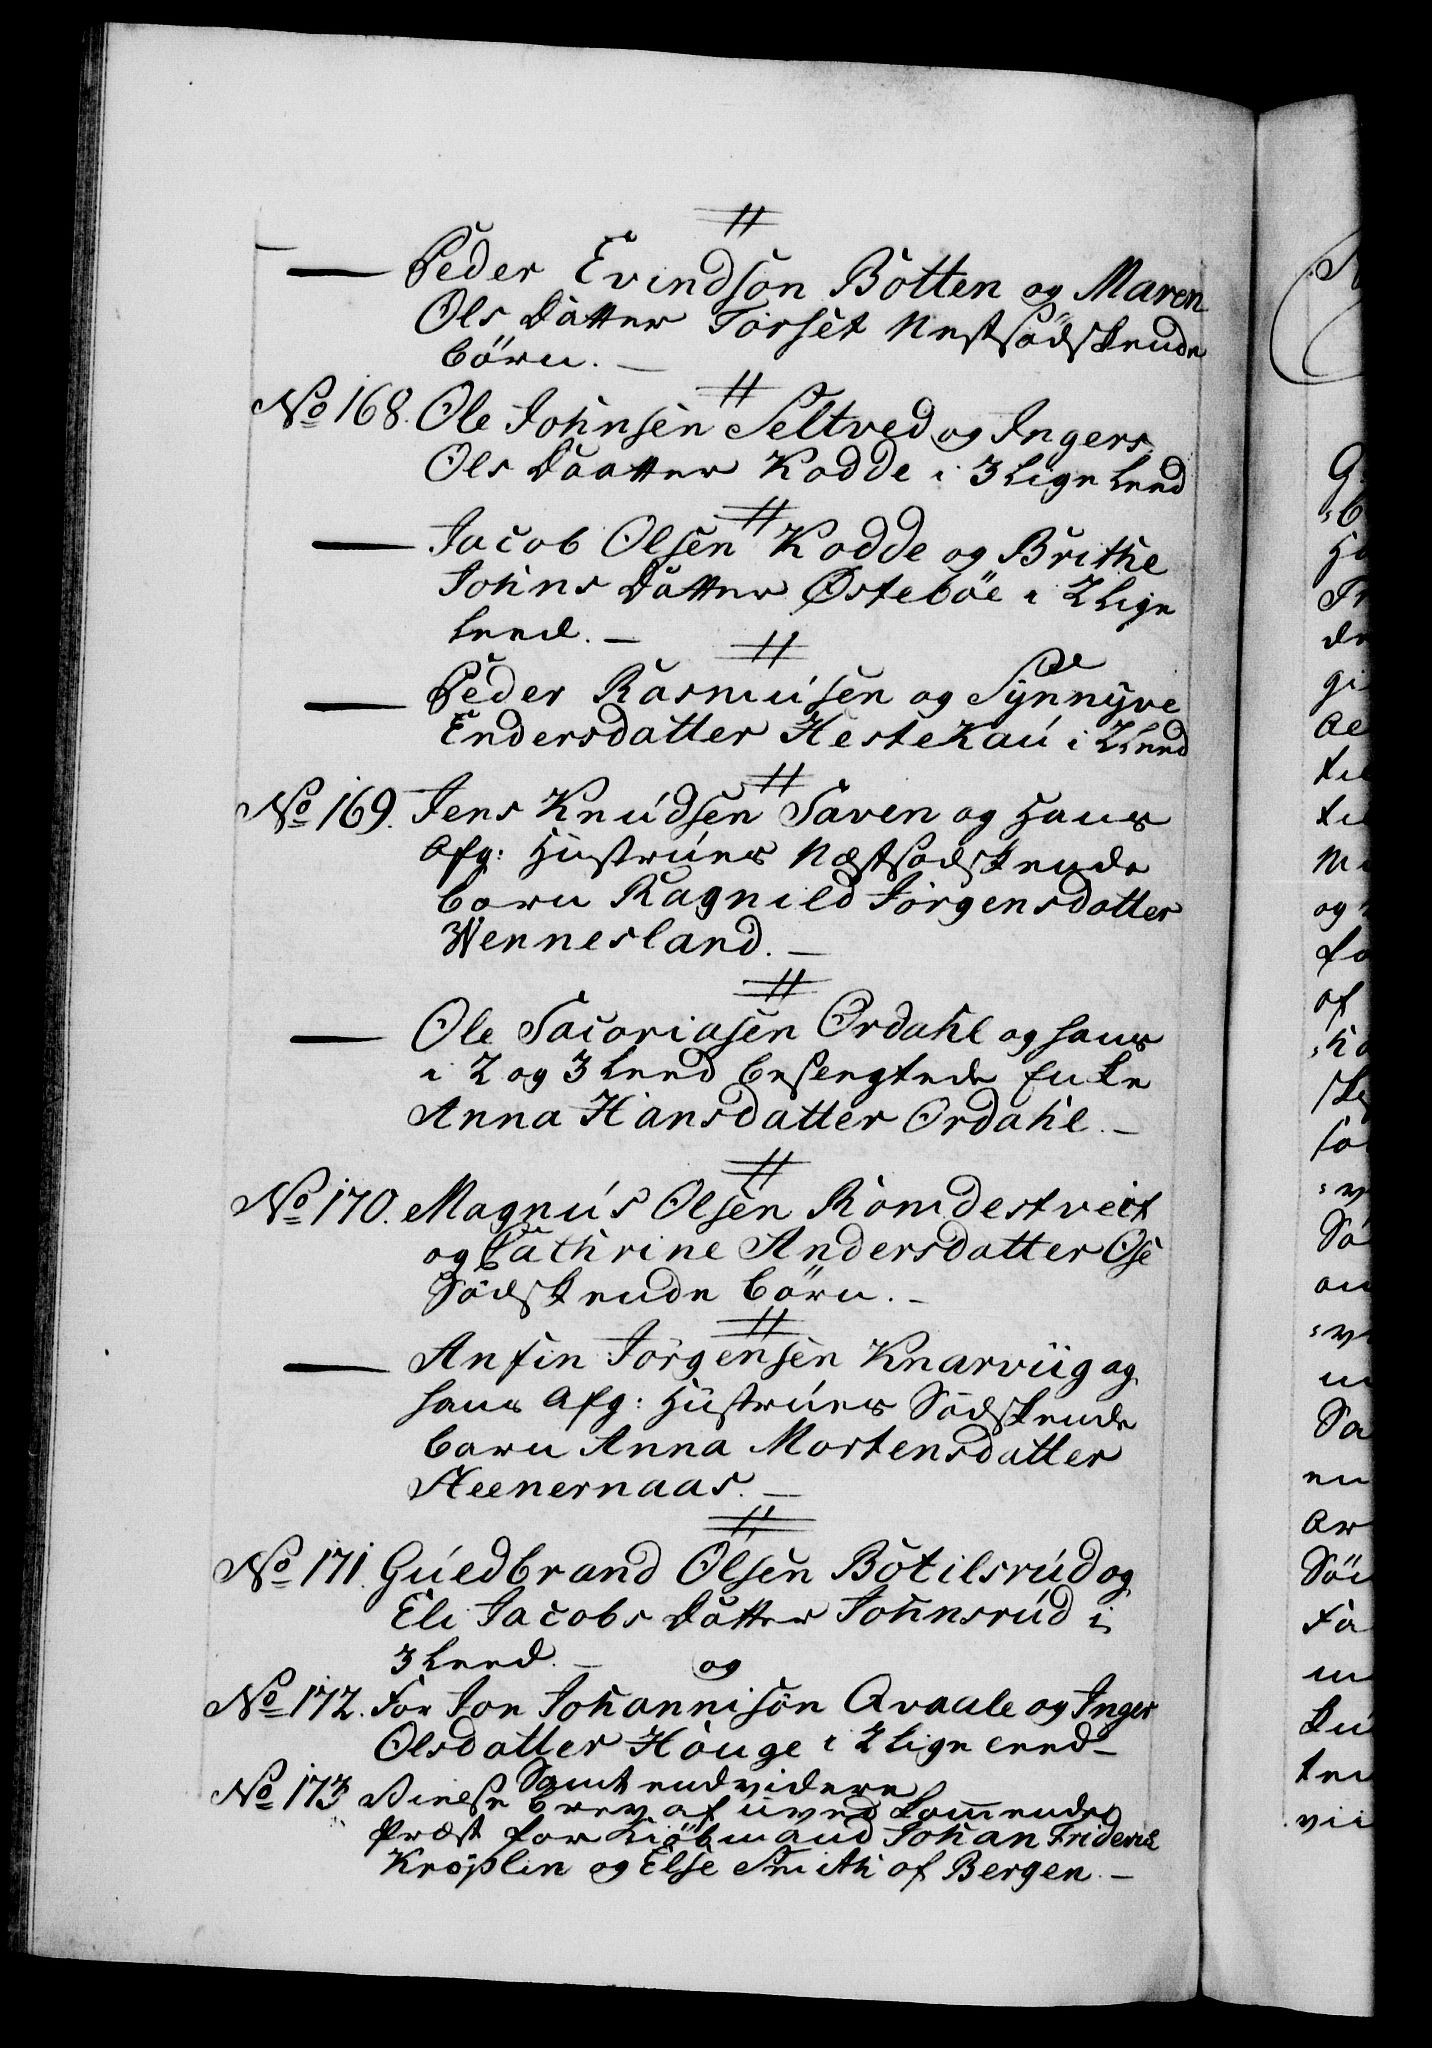 //
— Peder Evindsøn Botten og Maren
Ols Datter Torset Nestsødskende
børn. —
//
No 168. Ole Johnsen Seltved og Ingers
Ols Daatter Kodde i 3 Lige Leed
//
— Jacob Olsen Kodde og Brithe
Johns Datter Østebøe i 2 Lige
Leed. —
//
— Peder Rasmusen og Synnyve
Endersdatter Hestekau i 2 Leed
//
No 169. Jens Knudsen Saven og Hans
Afg: Hustrues Næstsødskende
barn Ragnild Jørgensdatter
Wennesland. —
//
— Ole Sacoriasen Ordahl og hans
i 2 og 3 Leed besvegrede Enke
Anna Hansdatter Ordahl. —
//
No 170. Magnus Olsen Romdestveit
og Cathrine Andersdatter Ose
Södskende börn. —
//
— Anfin Jörgensen Knarviig og
hans Afg: Hustrues Södskende
barn Anna Mortensdatter
Steenernaas. —
//
No 171. Guedbrand Olsen Botilsrud og
Eli Jacobs Datter Johnsrud i
3 Leed. — og
No 172. For Jon Johannisøn Avaale og Inger
Olsdatter Houge i 2 Lige Leed —
Samt endvidere
No 173 Vielse brev af uvedkommende
Præst for Kiöbmand Johan Friderik
Kröplin og Else Smith af Bergen. —